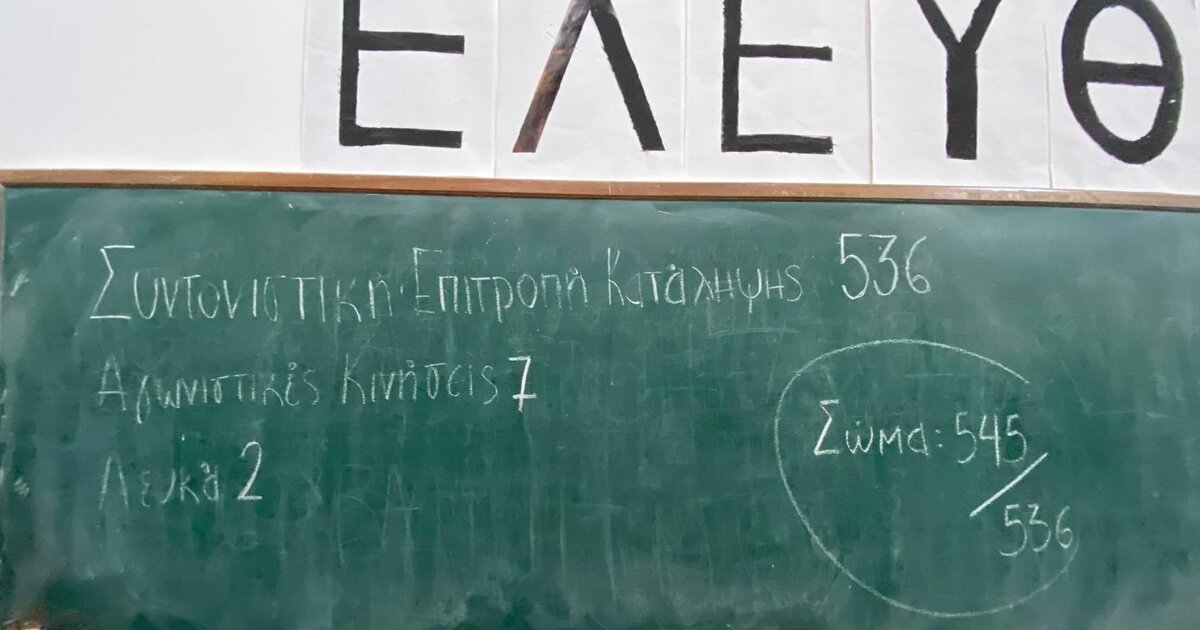 ΕΛΕΥΘ
Συντονιστική Επιτροπή Κατάληψης 536
Αγωνιστικές Κινήσεις 7
Λευκά 2
Σώμα: 545/
536